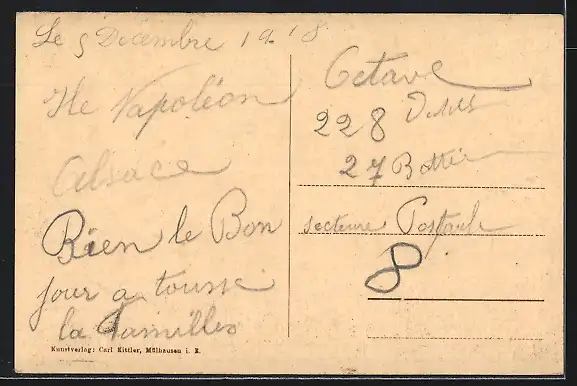 Le 5 Décembre 1918
Ile Napoléon
Alsace
Bien le Bon
jour a tousse
la familles
Octave
228
27 Batterie
secteure Postale
8
Kunstverlag: Carl Kittler, Mülhausen i. E.